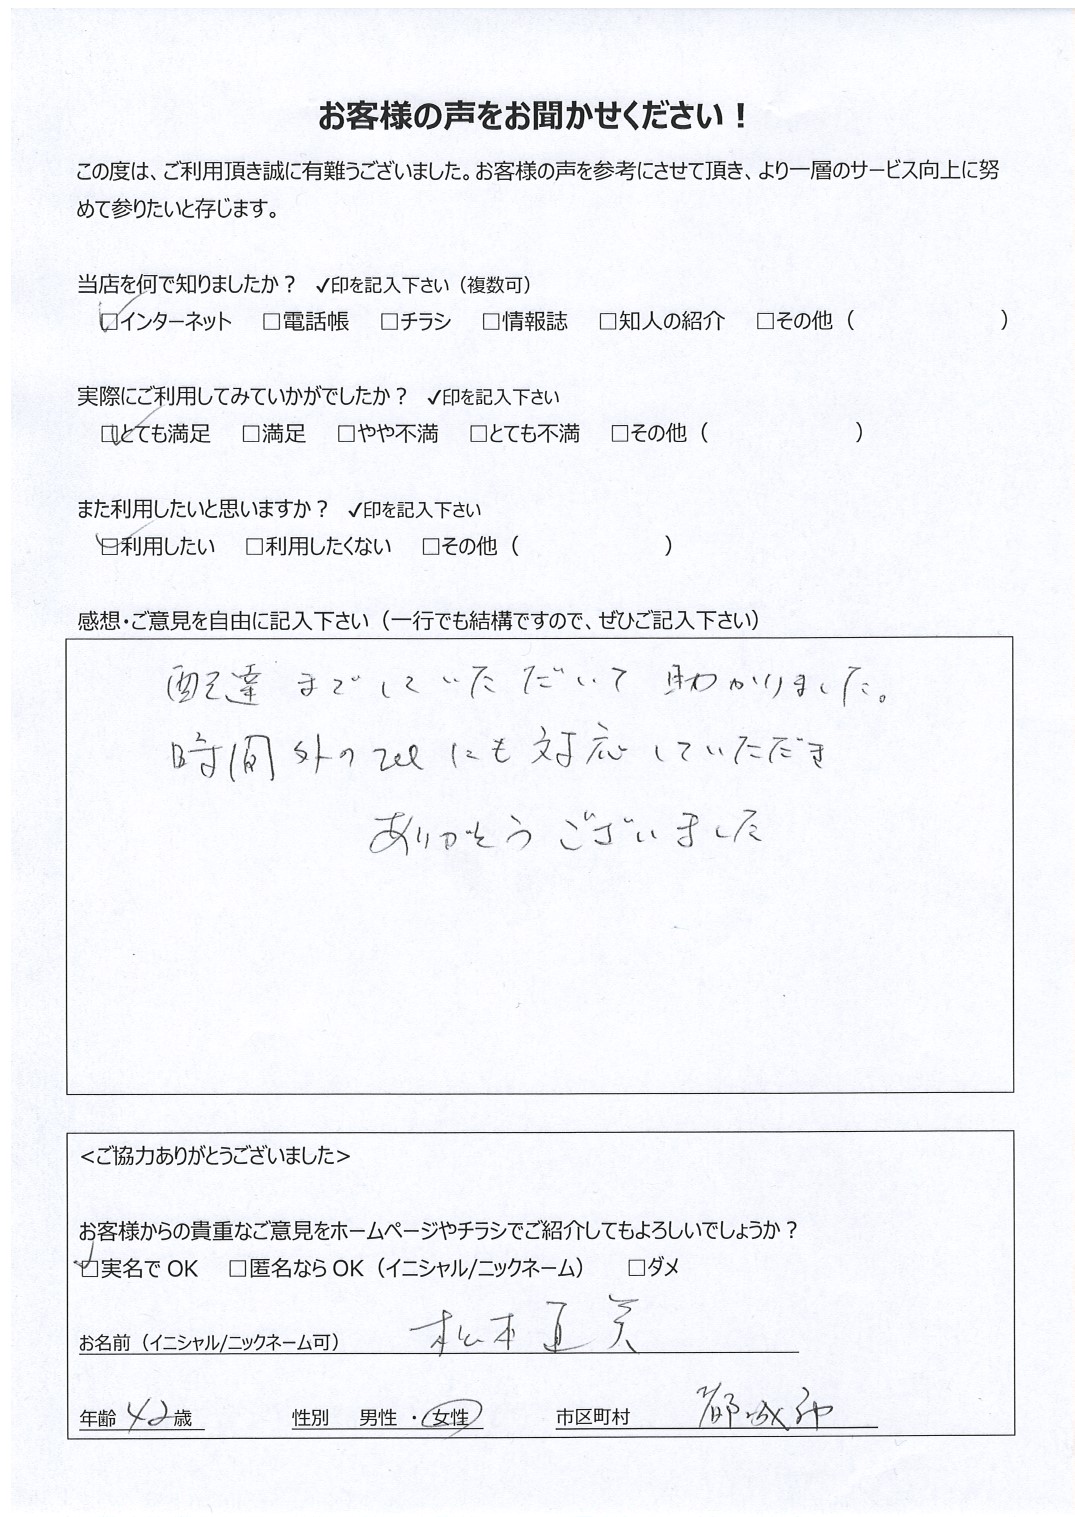 お客様の声をお聞かせください！
この度は、ご利用頂き誠に有難うございました。お客様の声を参考にさせて頂き、より一層のサービス向上に努
めて参りたいと存じます。
当店を何で知りましたか？ ✓印を記入下さい（複数可）
☑インターネット □電話帳 □チラシ □情報誌 □知人の紹介 □その他（ ）
実際にご利用してみていかがでしたか？ ✓印を記入下さい
☑とても満足 □満足 □やや不満 □とても不満 □その他（ ）
また利用したいと思いますか？ ✓印を記入下さい
☑利用したい □利用したくない □その他（ ）
感想・ご意見を自由に記入下さい（一行でも結構ですので、ぜひご記入下さい）
配達までしていただいて助かりました。
時間外のTelにも対応していただき
ありがとうございました
<ご協力ありがとうございました>
お客様からの貴重なご意見をホームページやチラシでご紹介してもよろしいでしょうか？
☑実名でOK □匿名ならOK（イニシャル/ニックネーム） □ダメ
お名前（イニシャル/ニックネーム可） 松本直美
年齢 42歳 性別 男性・女性 市区町村 都城市